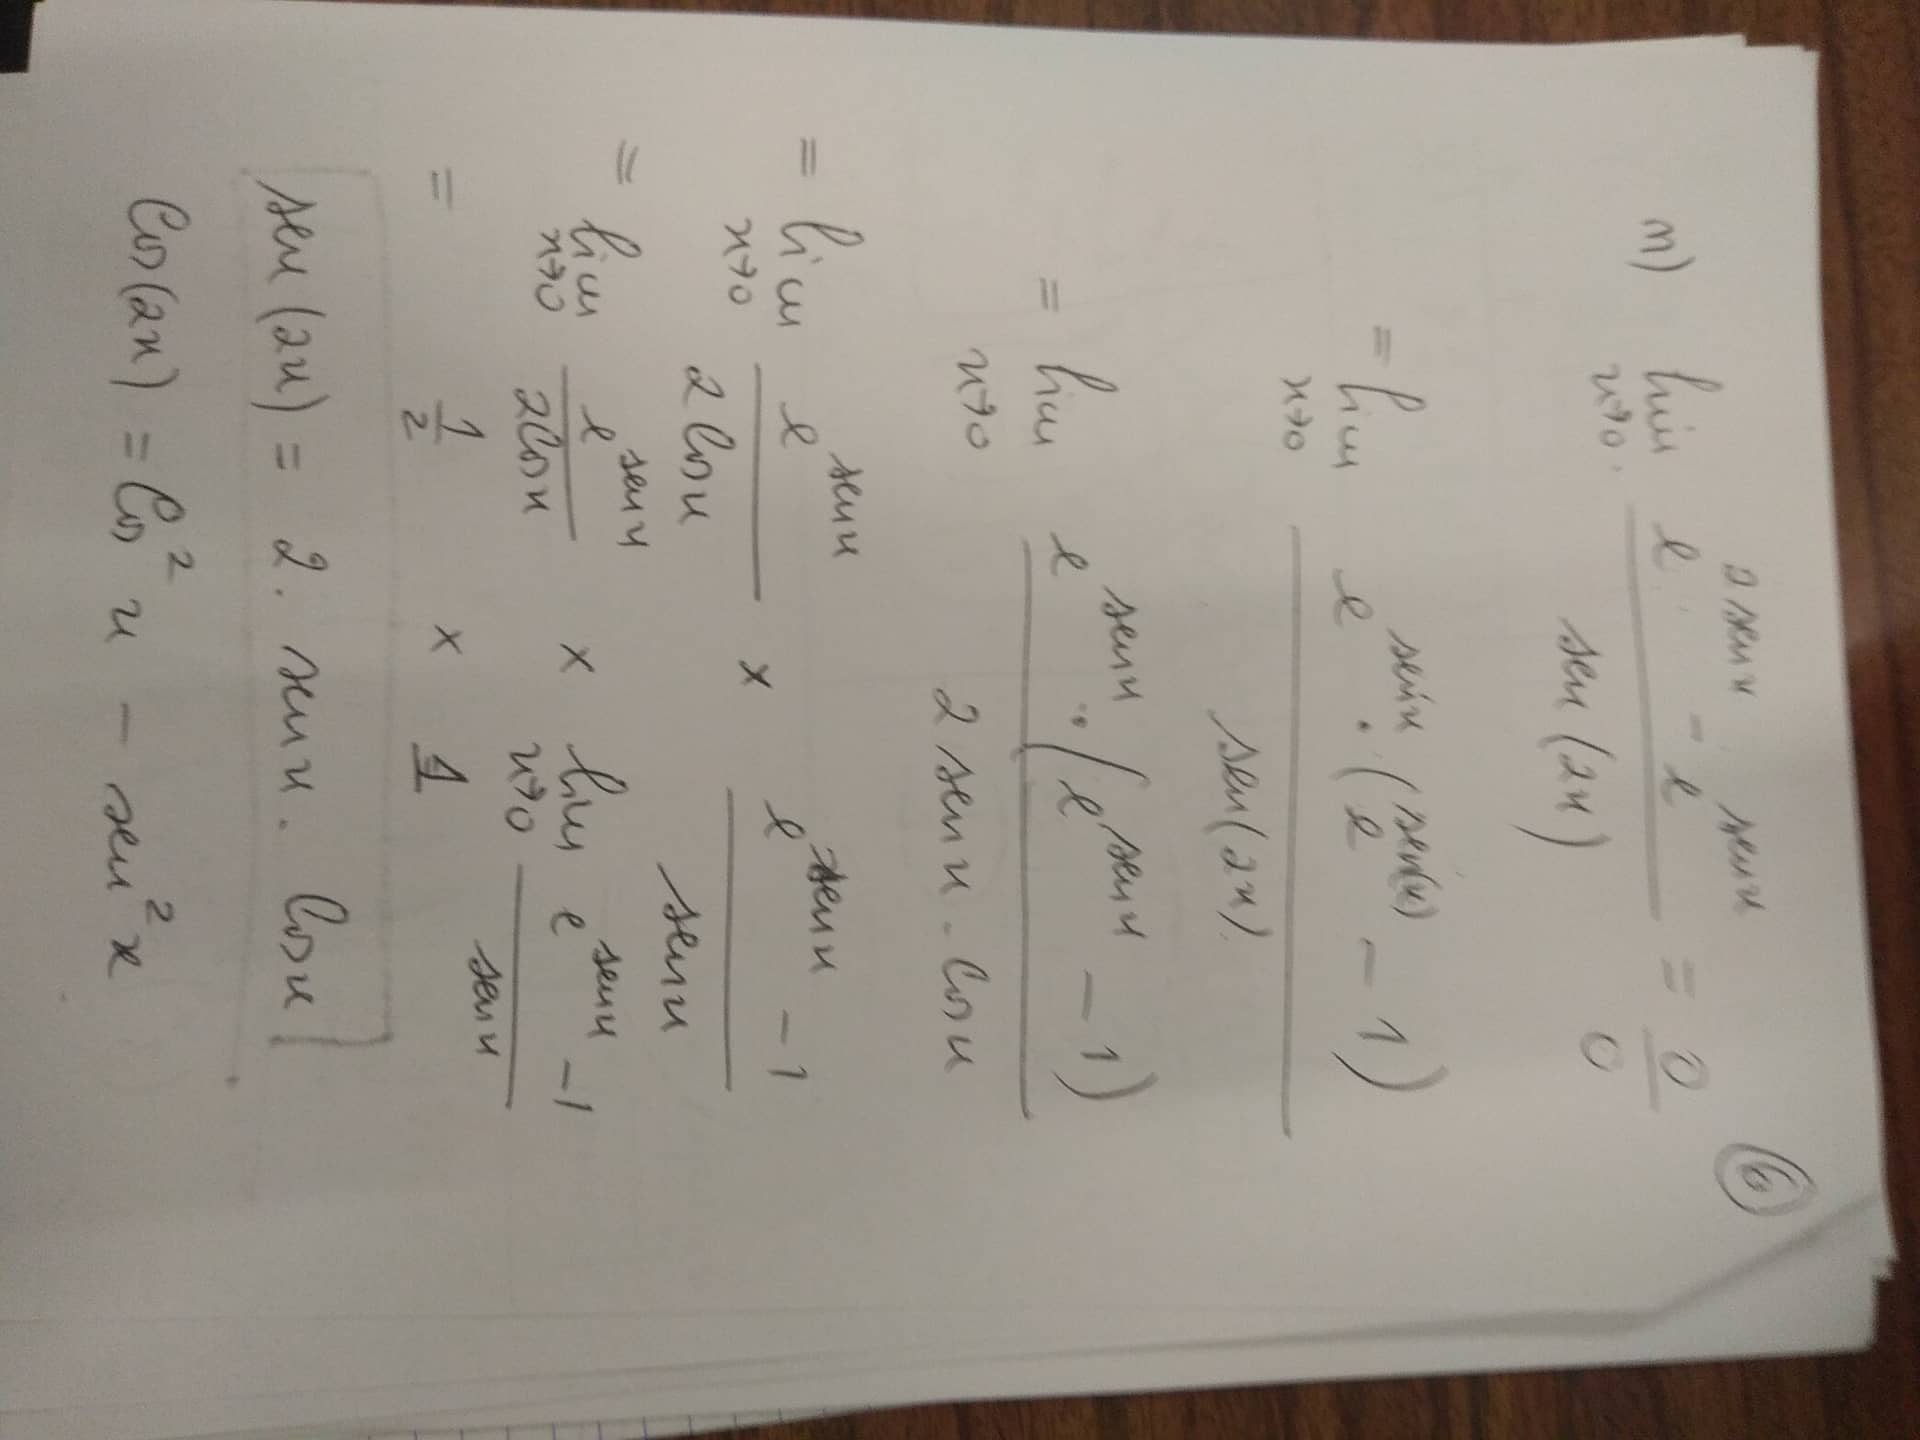 ⑥
m) lim x→0 (e^(2 sen x) - e^(sen x)) / sen(2x) = 0/0
= lim x→0 (e^(sen x) · (e^(sen(x)) - 1)) / sen(2x)
= lim x→0 (e^(sen x) · (e^(sen x) - 1)) / (2 sen x · Cos x)
= lim x→0 e^(sen x) / (2 Cos x) × (e^(sen x) - 1) / sen x
= lim x→0 e^(sen x) / (2 Cos x) × lim x→0 (e^(sen x) - 1) / sen x
= 1/2 × 1
sen(2x) = 2 · sen x · Cos x
Cos(2x) = Cos² x - sen² x